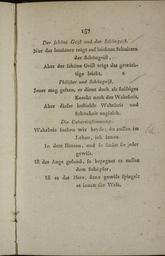 157
Der schöne Geist und der Schöngeist.
Nur das Leichtere trägt auf leichten Schultern
der Schöngeist,
Aber der schöne Geist trägt das gewichtige leicht.
Philister und Schöngeist.
Jener mag gelten, er dient doch als fleissiger
Knecht noch der Wahrheit,
Aber dieser bestiehlt Wahrheit und
Schönheit zugleich.
Die Uebereinstimmung.
Wahrheit suchen wir beyde; du aussen im
Leben, ich innen
In dem Herzen, und so findet sie jeder
gewiss.
Ist das Auge gesund, so begegnet es aussen
dem Schöpfer,
Ist es das Herz, dann gewiss spiegelt
es innen die Welt.